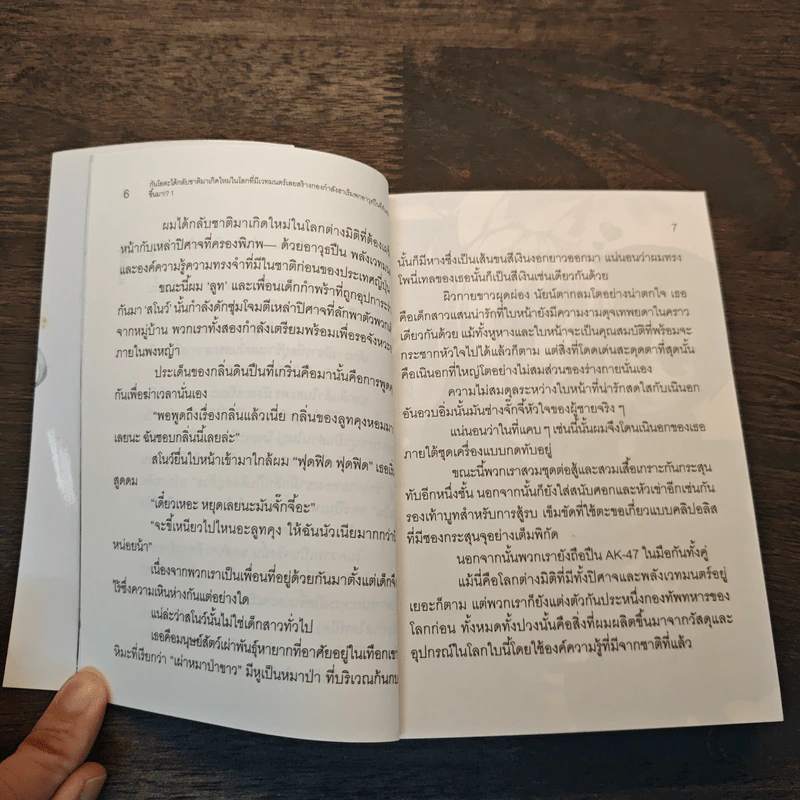 6
กันโอตะได้กลับชาติมาเกิดใหม่ในโลกที่มีเวทมนตร์เลยสร้างกองกำลังฮาเร็มพกอาวุธปืน
ขึ้นมา!? 1
ผมได้กลับชาติมาเกิดใหม่ในโลกต่างมิติที่ต้อง
หน้ากับเหล่าปิศาจที่ครองพิภพ— ด้วยอาวุธปืน พลังเวทมน
และองค์ความรู้ความทรงจำที่มีในชาติก่อนของประเทศญี่ปุ่น
ขณะนี้ผม ‘ลูท’ และเพื่อนเด็กกำพร้าที่ถูกอุปการะ
กันมา ‘สโนว์’ นั้นกำลังดักซุ่มโจมตีเหล่าปิศาจที่ลักพาตัวพวก
จากหมู่บ้าน พวกเราทั้งสองกำลังเตรียมพร้อมเพื่อรอจังหวะ
ภายในพงหญ้า
ประเด็นของกลิ่นดินปืนที่เกริ่นคือมานั้นคือการพูดคุย
กันเพื่อฆ่าเวลานั่นเอง
“พอพูดถึงเรื่องกลิ่นแล้วเนี่ย กลิ่นของลูทคุงหอมมาก
เลยนะ ฉันชอบกลิ่นนี้เลยล่ะ”
สโนว์ยื่นใบหน้าเข้ามาใกล้ผม “ฟุดฟิด ฟุดฟิด” เธอ
สูดดม
“เดี๋ยวเหอะ หยุดเลยนะมันจั๊กจี้อะ”
“จะขี้เหนียวไปไหนอะลูทคุง ให้ฉันนัวเนียมากกว่านี้
หน่อยน้า”
เนื่องจากพวกเราเป็นเพื่อนที่อยู่ด้วยกันมาตั้งแต่เด็กจึง
ไร้ซึ่งความเหินห่างกันแต่อย่างใด
แน่ล่ะว่าสโนว์นั้นไม่ใช่เด็กสาวทั่วไป
เธอคือมนุษย์สัตว์เผ่าพันธุ์หายากที่อาศัยอยู่ในเทือกเขา
หิมะที่เรียกว่า “เผ่าหมาป่าขาว” มีหูเป็นหมาป่า ที่บริเวณก้นกบ
7
นั้นก็มีหางซึ่งเป็นเส้นขนสีเงินงอกยาวออกมา แน่นอนว่าผมทรง
โพนี่เทลของเธอนั้นก็เป็นสีเงินเช่นเดียวกันด้วย
ผิวกายขาวผุดผ่อง นัยน์ตากลมโตอย่างน่าตกใจ เธอ
คือเด็กสาวแสนน่ารักที่ใบหน้ายังมีความงามดุจเทพยดาในคราว
เดียวกันด้วย แม้ทั้งหูหางและใบหน้าจะเป็นคุณสมบัติที่พร้อมจะ
กระชากหัวใจไปได้แล้วก็ตาม แต่สิ่งที่โดดเด่นสะดุดตาที่สุดนั้น
คือเนินอกที่ใหญ่โตอย่างไม่สมส่วนของร่างกายนั่นเอง
ความไม่สมดุลระหว่างใบหน้าที่น่ารักสดใสกับเนินอก
อันอวบอิ่มนั้นมันช่างจั๊กจี้หัวใจของผู้ชายจริง ๆ
แน่นอนว่าในที่แคบ ๆ เช่นนี้นั้นผมจึงโดนเนินอกของเธอ
ภายใต้ชุดเครื่องแบบกดทับอยู่
ขณะนี้พวกเราสวมชุดต่อสู้และสวมเสื้อเกราะกันกระสุน
ทับอีกหนึ่งชั้น นอกจากนั้นก็ยังใส่สนับศอกและหัวเข่าอีกเช่นกัน
รองเท้าบูทสำหรับการสู้รบ เข็มขัดที่ใช้ตะขอเกี่ยวแบบคลิปอลิส
ที่มีซองกระสุนจุอย่างเต็มพิกัด
นอกจากนั้นพวกเรายังถือปืน AK-47 ในมือกันทั้งคู่
แม้นี่คือโลกต่างมิติที่มีทั้งปิศาจและพลังเวทมนตร์อยู่
เยอะก็ตาม แต่พวกเราก็ยังแต่งตัวกันประหนึ่งกองทัพทหารของ
โลกก่อน ทั้งหมดทั้งปวงนั้นคือสิ่งที่ผมผลิตขึ้นมาจากวัสดุและ
อุปกรณ์ในโลกใบนี้โดยใช้องค์ความรู้ที่มีจากชาติที่แล้ว